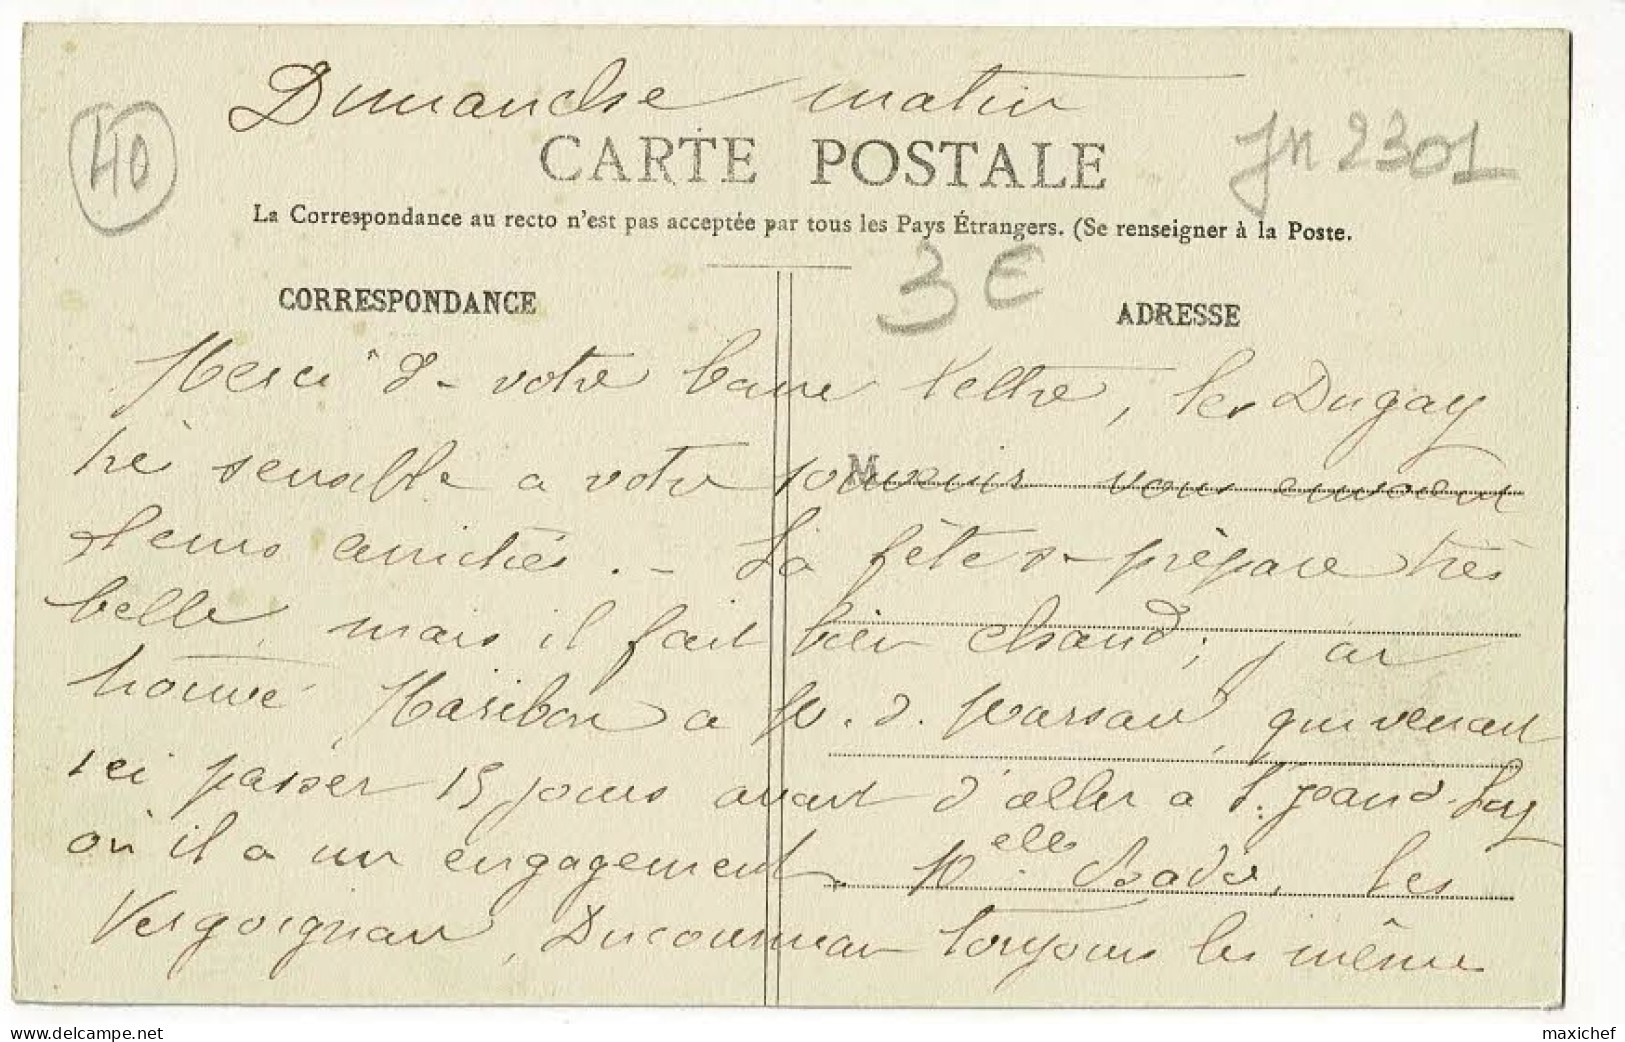 Dimanche matin
40
Jn 2301
CARTE POSTALE
La Correspondance au recto n'est pas acceptée par tous les Pays Étrangers. (Se renseigner à la Poste.
3 €
CORRESPONDANCE
ADRESSE
M
Merci d votre bonne lettre, les Dugay
très sensible a votre souvenir vous envoient
leurs amitiés. - La fête s- prépare très
belle, mais il fait bien chaud; j'ai
trouvé a M. d. Marsan, qui venait
ici passer 15 jours avant d'aller a St. Jean d. Luz
où il a un engagement. Melle les
Vergoignan, Ducournau toujours les même
maxichef